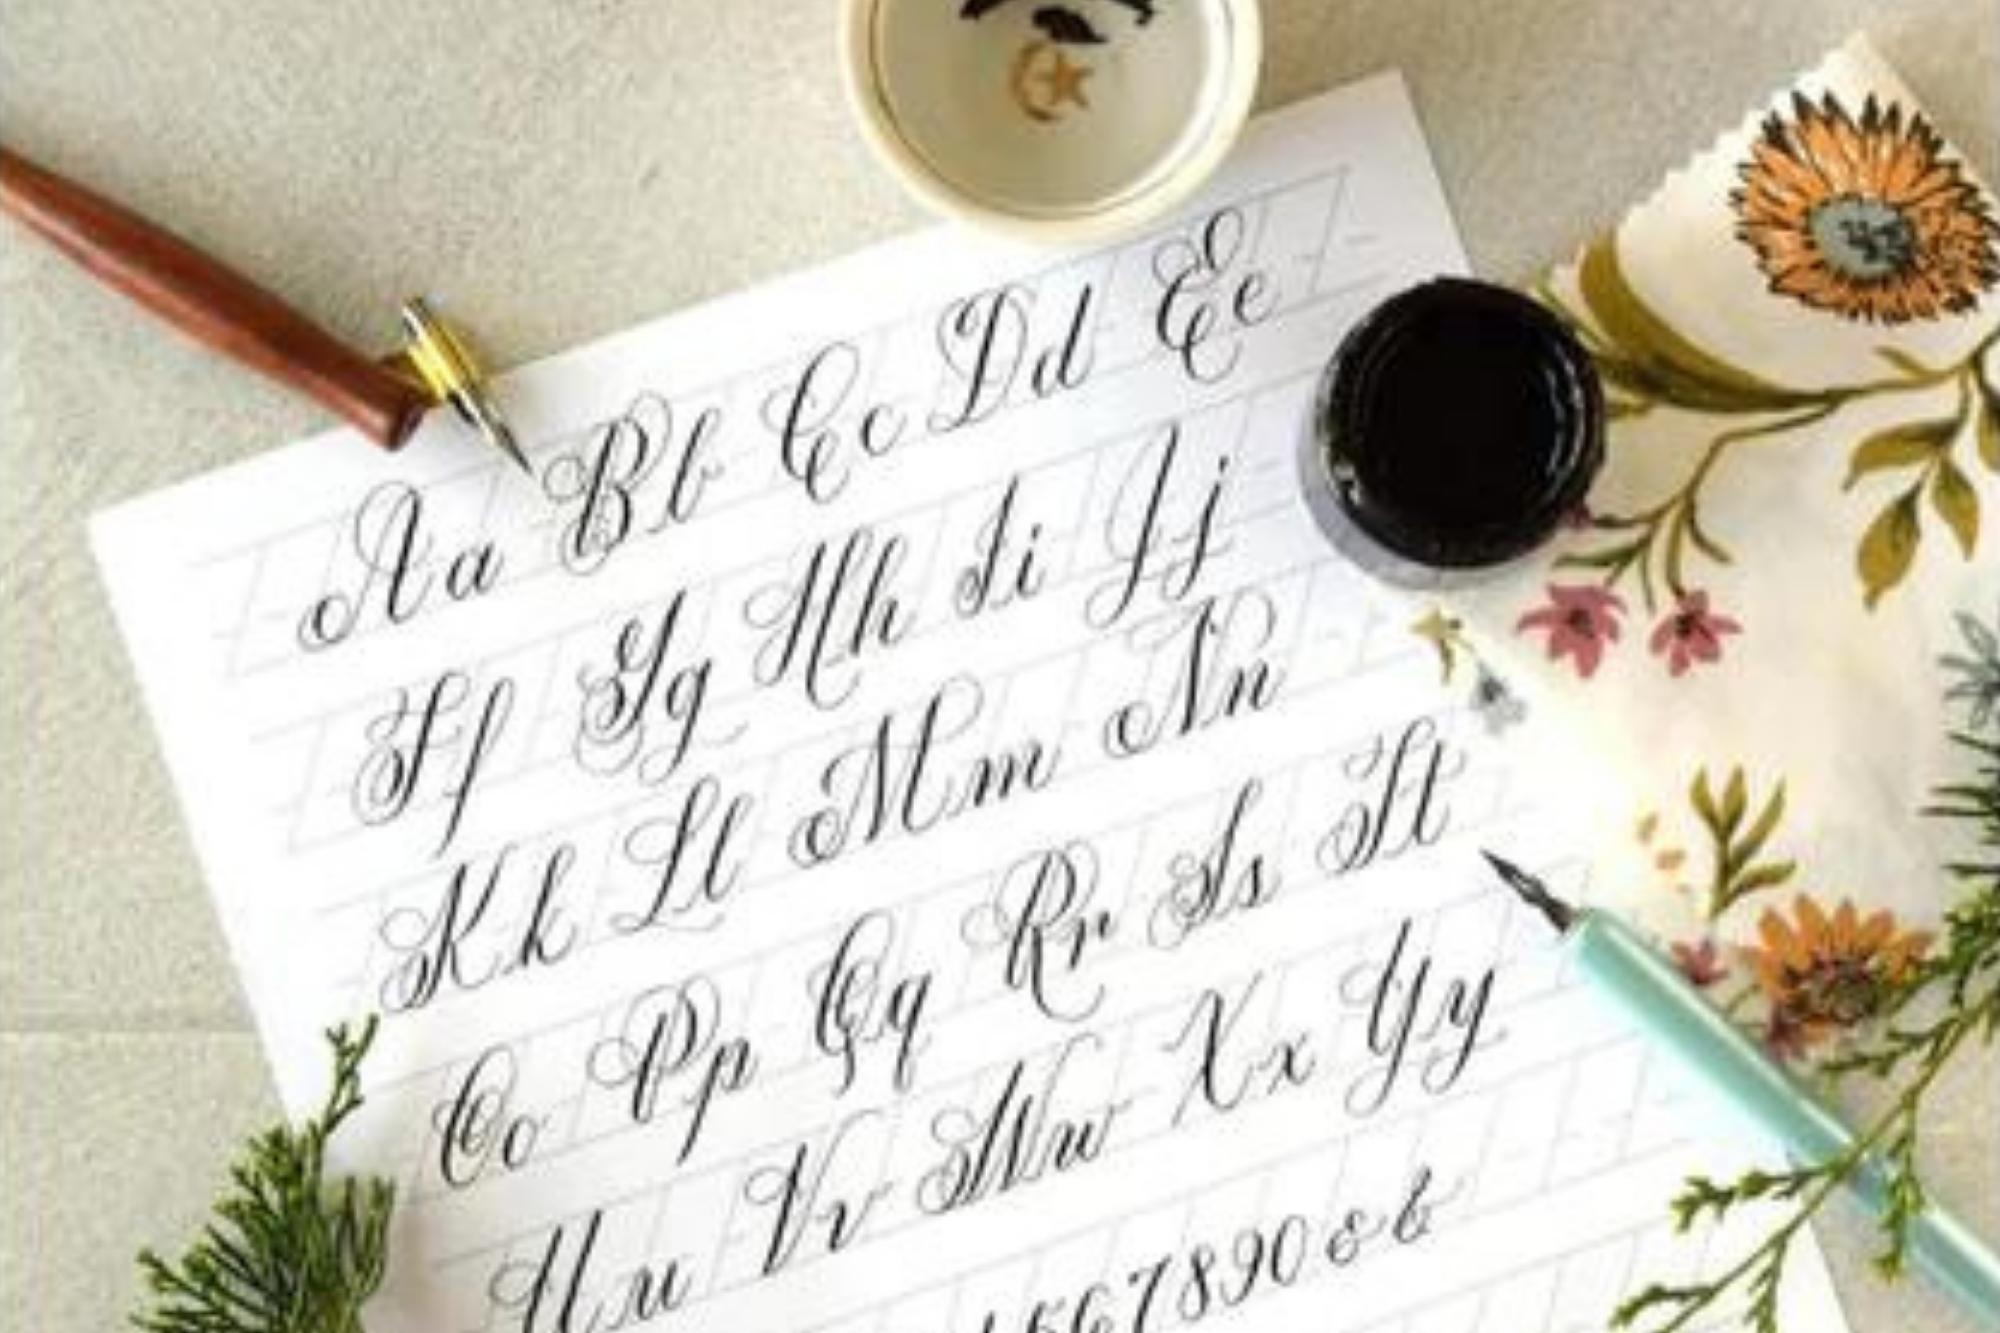 Aa Bb Cc Dd Ee
Ff Gg Hh Ii Jj
Kk Ll Mm Nn
Oo Pp Qq Rr Ss Tt
Uu Vv Ww Xx Yy
567890 & &